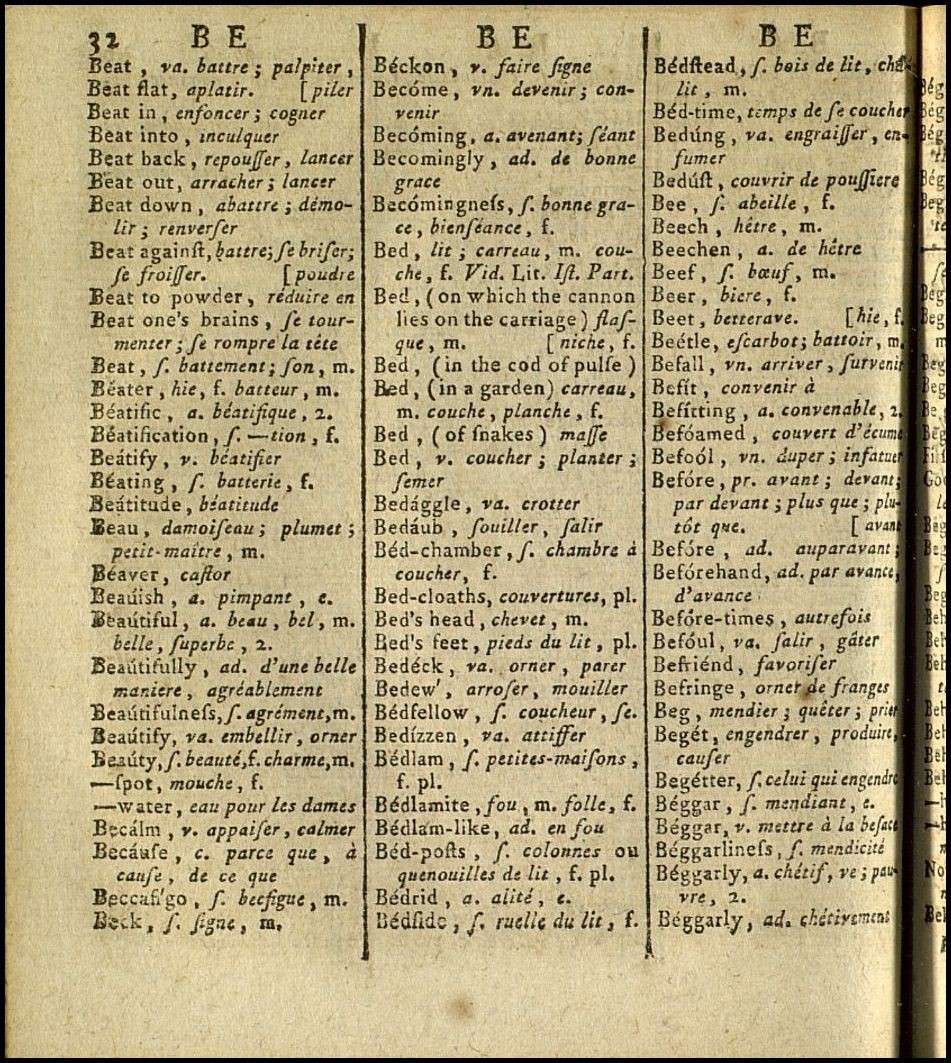 32 B E
Beat, va. battre; palpiter,
Beat flat, aplatir. [piler
Beat in, enfoncer; cogner
Beat into, inculquer
Beat back, repouſſer, lancer
Beat out, arracher; lancer
Beat down, abattre; démo-
lir; renverſer
Beat againſt, battre; ſe briſer;
ſe froiſſer. [poudre
Beat to powder, réduire en
Beat one's brains, ſe tour-
menter; ſe rompre la tête
Beat, ſ. battement; ſon, m.
Béater, hie, f. batteur, m.
Béatific, a. béatifique, 2.
Béatification, ſ. —tion, f.
Beátify, v. béatifier
Béating, ſ. batterie, f.
Beátitude, béatitude
Beau, damoiſeau; plumet;
petit-maitre, m.
Béaver, caſtor
Beaúish, a. pimpant, e.
Beaútiful, a. beau, bel, m.
belle, ſuperbe, 2.
Beaútifully, ad. d'une belle
maniere, agréablement
Beaútifulneſs, ſ. agrément, m.
Beaútify, va. embellir, orner
Beaúty, ſ. beauté, f. charme, m.
—ſpot, mouche, f.
—water, eau pour les dames
Becálm, v. appaiſer, calmer
Becáuſe, c. parce que, à
cauſe, de ce que
Beccafi'go, ſ. becfigue, m.
Beck, ſ. ſigne, m.
B E
Béckon, v. faire ſigne
Becóme, vn. devenir; con-
venir
Becóming, a. avenant; ſéant
Becomingly, ad. de bonne
grace
Becómingneſs, ſ. bonne gra-
ce, bienſéance, f.
Bed, lit; carreau, m. cou-
che, f. Vid. Lit. Iſt. Part.
Bed, (on which the cannon
lies on the carriage) flaſ-
que, m. [niche, f.
Bed, (in the cod of pulſe)
Bed, (in a garden) carreau,
m. couche, planche, f.
Bed, (of ſnakes) maſſe
Bed, v. coucher; planter;
ſemer
Bedággle, va. crotter
Bedáub, ſouiller, ſalir
Béd-chamber, ſ. chambre à
coucher, f.
Bed-cloaths, couvertures, pl.
Bed's head, chevet, m.
Bed's feet, pieds du lit, pl.
Bedéck, va. orner, parer
Bedew', arroſer, mouiller
Bédfellow, ſ. coucheur, ſe.
Bedízzen, va. attiffer
Bédlam, ſ. petites-maiſons,
f. pl.
Bédlamite, fou, m. folle, f.
Bédlam-like, ad. en fou
Béd-poſts, ſ. colonnes ou
quenouilles de lit, f. pl.
Bédrid, a. alité, e.
Bédſide, ſ. ruelle du lit, f.
B E
Bédſtead, ſ. bois de lit,
lit, m.
Béd-time, temps de ſe coucher
Bedúng, va. engraiſſer, en-
fumer
Bedúſt, couvrir de pouſſiere
Bee, ſ. abeille, f.
Beech, hêtre, m.
Beechen, a. de hêtre
Beef, ſ. bœuf, m.
Beer, biere, f.
Beet, betterave. [hie, f.
Beétle, eſcarbot; battoir, m.
Befall, vn. arriver, ſurvenir
Befít, convenir à
Befítting, a. convenable, 2.
Befóamed, couvert d'écume
Befoól, vn. duper; infatuer
Befóre, pr. avant; devant;
par devant; plus que; plu-
tôt que. [avant
Befóre, ad. auparavant;
Befórehand, ad. par avance,
d'avance
Befóre-times, autrefois
Befóul, va. ſalir, gâter
Befriénd, favoriſer
Befringe, orner de franges
Beg, mendier; quêter; prier
Begét, engendrer, produire,
cauſer
Begétter, ſ. celui qui engendre
Béggar, ſ. mendiant, e.
Béggar, v. mettre à la beſace
Béggarlineſs, ſ. mendicité
Béggarly, a. chétif, ve; pau-
vre, 2.
Béggarly, ad. chétivement